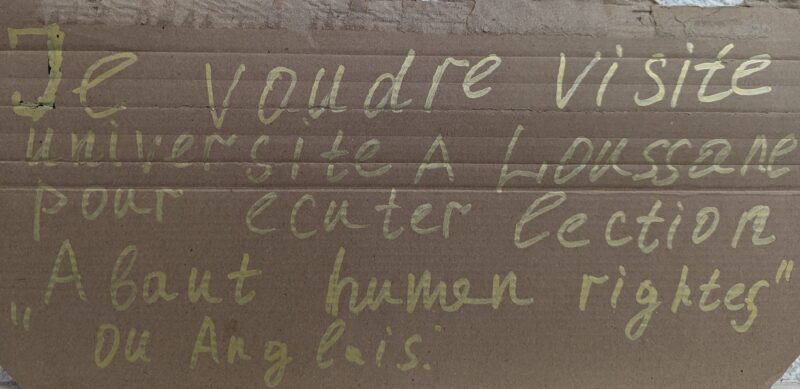 Je voudre visite
universite A Loussane
pour ecuter lection
"Abaut human rightes"
ou Anglais.